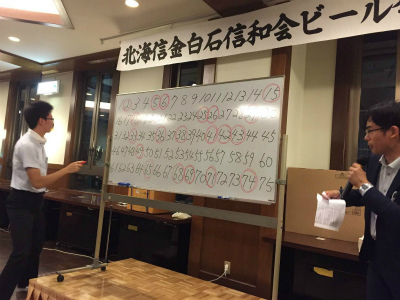 北海信金白石信和会ビール
1 2 3 4 5 6 7 8 9 10 11 12 13 14 15
22 23 24 25 26 27
31 34 35 36 37 38 39 40 41 42 43 44 45
50 51 52 53 54 55 56 57 58 59 60
61 62 63 64 65 66 67 68 69 70 71 72 73 74 75